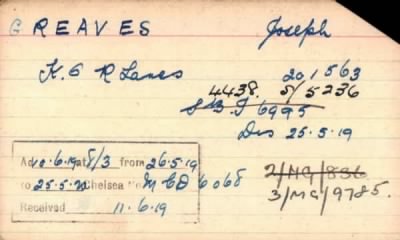 GREAVES Joseph
K.O R Lancs 201563
4438. S/5236
S B I 6995
Dis 25.5.19
Ad 10.6.19 at 8/3 from 26.5.19
to 25.5.20 Chelsea No M CD 6068
Received 11.6.19
2/MG/836
3/MG/9785.